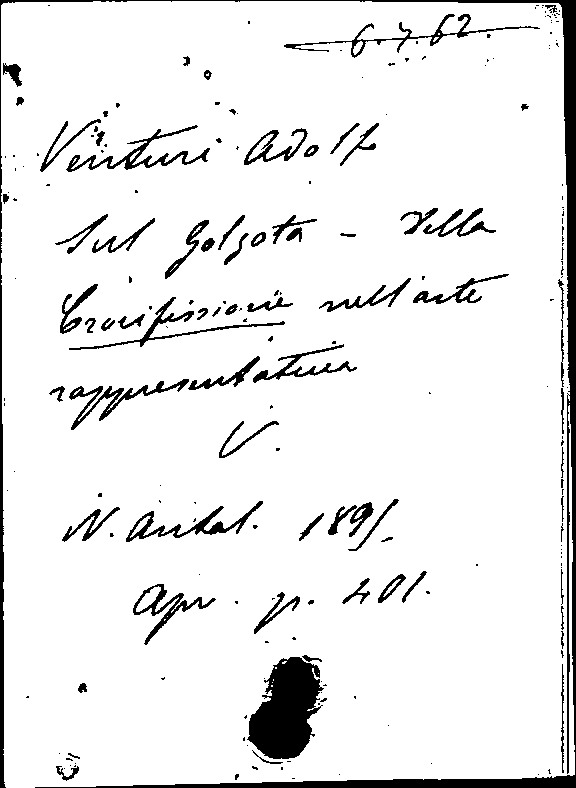 6.7.62.
Venturi Adolf
Sul Golgota - Della
Crocifissione nell'arte
rappresentativa
V.
N. Antol. 1895
Apr. p. 401.